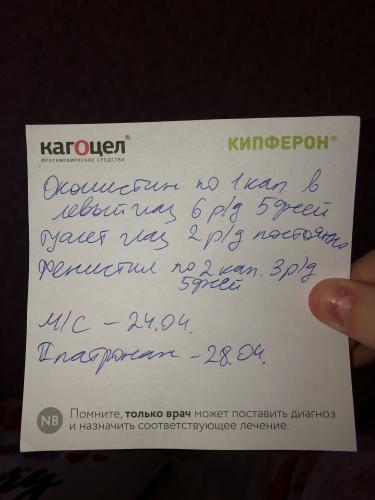 кагОцел®
ПРОТИВОВИРУСНОЕ СРЕДСТВО
КИПФЕРОН®
Окомистин по 1 кап. в
левый глаз 6 р/д 5 дней
Туалет глаз 2 р/д постоянно
Фенистил по 2 кап. 3 р/д
5 дней
М/С – 24.04.
II патронаж – 28.04.
NB
Помните, только врач может поставить диагноз
и назначить соответствующее лечение.